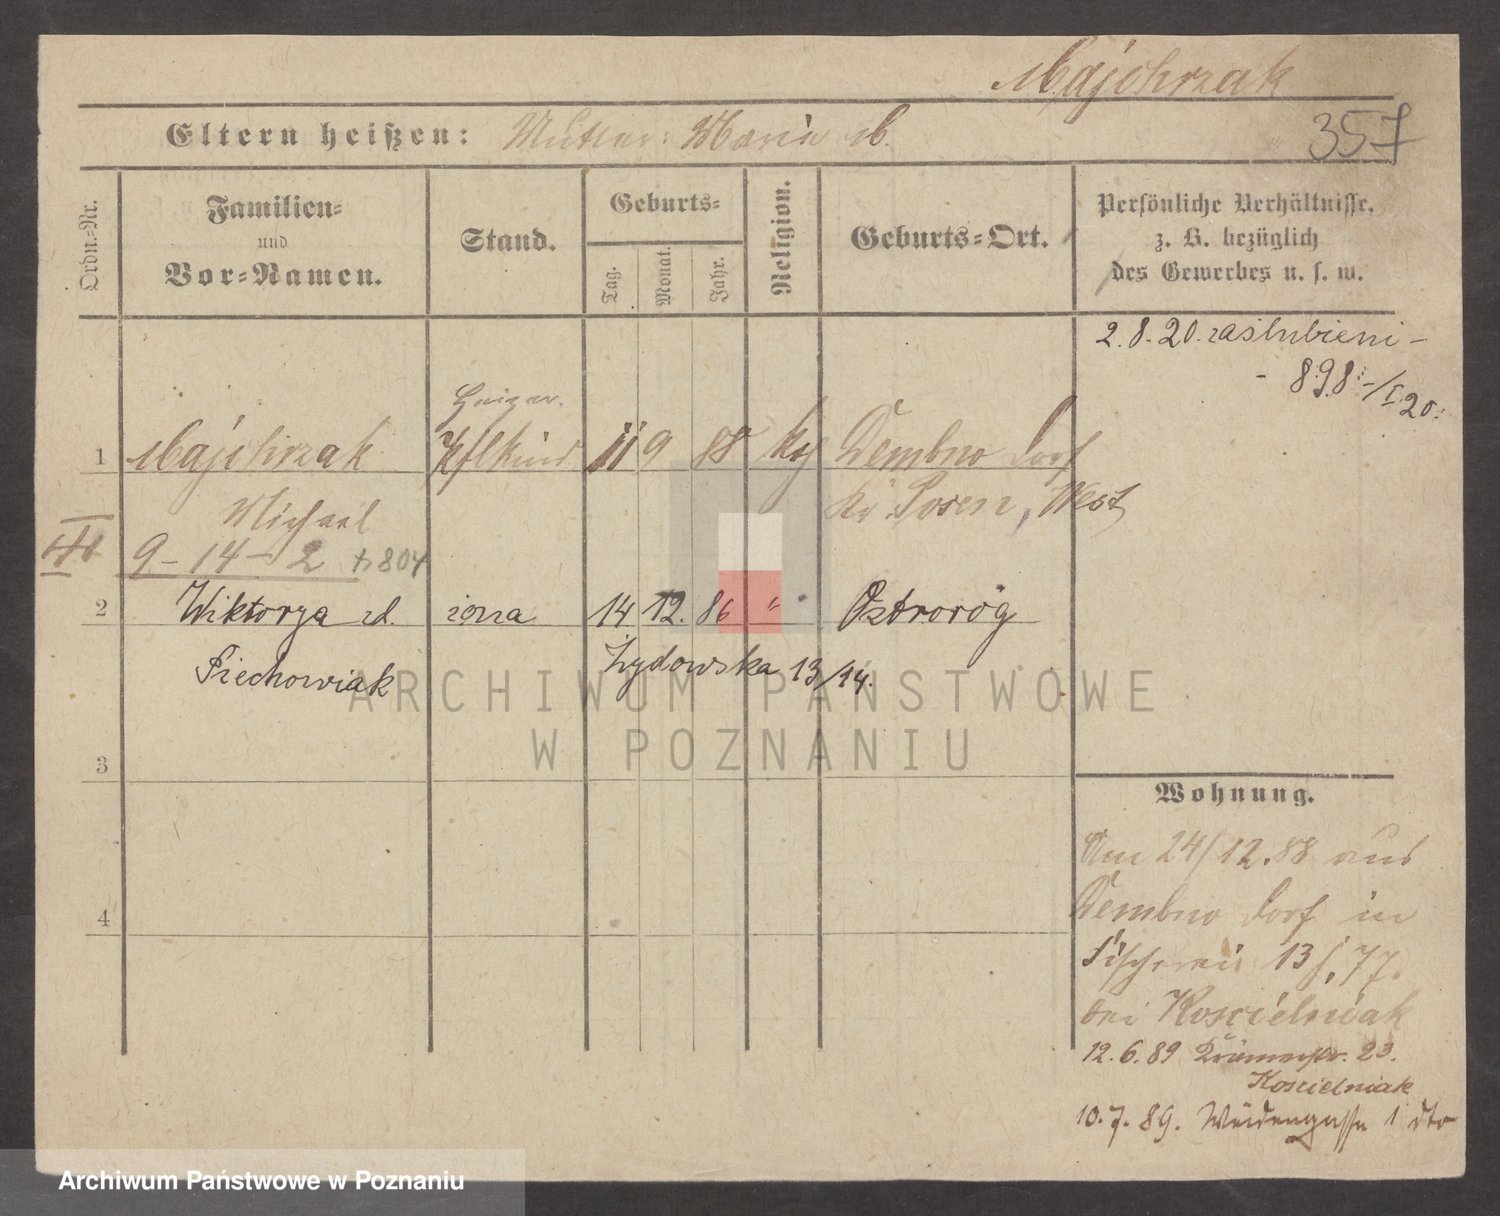 Majchrzak
Eltern heißen: Mutter: Marie M.
357
Ordn.=Nr.
Familien=
und
Vor=Namen.
Stand.
Geburts=
Tag.
Monat.
Jahr.
Religion.
Geburts=Ort.
Persönliche Verhältnisse,
z. B. bezüglich
des Gewerbes u. s. w.
2.8.20. zaślubieni -
- 898 -/I 20.
Heizer.
1 Majchrzak Pflkind 11 9 88 kth Dembno Dorf
Michael Kr. Posen, West
9 - 14 - 2 804
2 Wiktorya zd. żona 14 12. 86 " Ostroróg
Piechowiak Żydowska 13/14.
ARCHIWUM PAŃSTWOWE
W POZNANIU
3
4
Wohnung.
Am 24/12.88 aus
Dembno Dorf in
Fischerei 13 f. 77.
bei Kościelniak
12.6.89 Krämerstr. 23.
Kościelniak
10.7.89. Weidengasse 1 dto
Archiwum Państwowe w Poznaniu